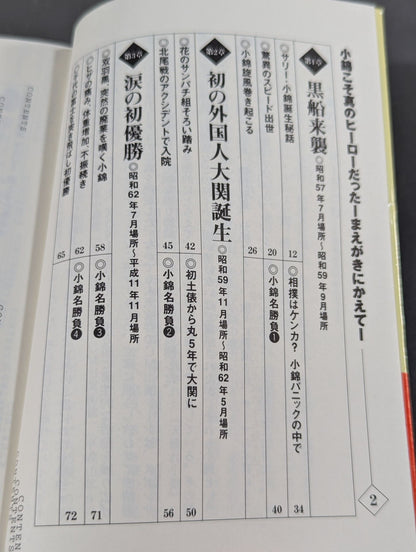 小錦こそ真のヒーローだったーまえがきにかえてー 2
第1章 黒船来襲 ◎昭和57年7月場所～昭和59年9月場所
◎サリー・小錦誕生秘話 12
◎驚異のスピード出世 20
◎小錦旋風巻き起こる 26
◎相撲はケンカ？ 小錦パニックの中で 34
◎小錦名勝負❶ 40
第2章 初の外国人大関誕生 ◎昭和59年11月場所～昭和62年5月場所
◎花のサンパチ組そろい踏み 42
◎北尾戦のアクシデントで入院 45
◎初土俵から丸5年で大関に 50
◎小錦名勝負❷ 56
第3章 涙の初優勝 ◎昭和62年7月場所～平成11年11月場所
◎双羽黒、突然の廃業を嘆く小錦 58
◎ヒザの痛み、体重増加、不振続き 62
初優勝 65
◎小錦名勝負❸ 71
◎小錦名勝負❹ 72
CONTENTS
CONTENTS